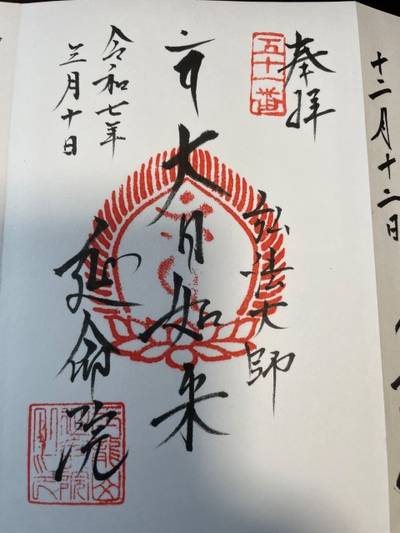 十二月十二日
奉拝
五十一番
弘法大師
大日如来
令和七年
三月十日
延命院